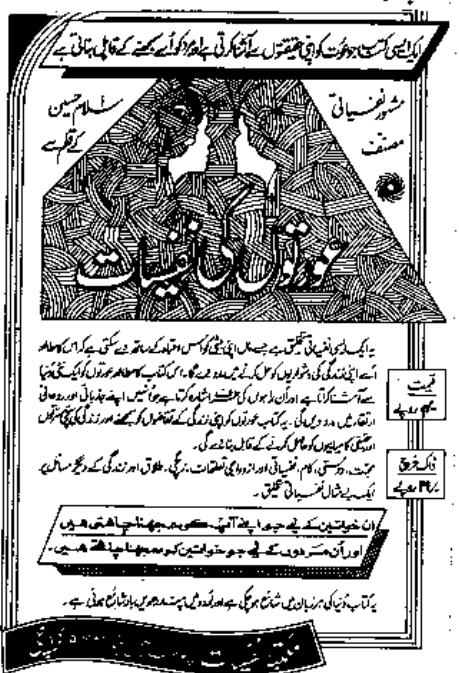 ایک ایسی کتاب جو عورت کو اپنی حقیقتوں سے آشنا کرتی ہے اور مرد کو اُسے سمجھنے کے قابل بناتی ہے
مشہور نفسیاتی
مصنف
سلام حسین
کے قلم سے
عورتوں کی نفسیات
یہ ایک ایسی نفسیاتی تخلیق ہے جسے ماں اپنی بیٹی کو اس اعتماد کے ساتھ دے سکتی ہے کہ اس کا مطالعہ
اُسے اپنی زندگی کی دشواریوں کو حل کرنے میں مدد دے گا۔ اس کتاب کا مطالعہ عورتوں کو ایک نئی دنیا
سے آشنا کراتا ہے اور اُن راہوں کی طرف اشارہ کرتا ہے جو اُنہیں اپنے جذباتی اور روحانی
ارتقاء میں مدد دیں گی۔ یہ کتاب عورتوں کو اپنی زندگی کے تقاضوں کو سمجھنے اور زندگی کی سچی مسرتوں
اور حقیقی کامیابیوں کو حاصل کرنے کے قابل بنا دے گی۔
محبت، دوستی، کام، نفسیاتی اور ازدواجی تعلقات، زچگی، طلاق اور زندگی کے دیگر مسائل پر
ایک بے مثال نفسیاتی تخلیق۔
قیمت
روپے
ڈاک خرچ
روپے
ان خواتین کے لیے جو اپنے آپ کو سمجھنا چاہتی ہیں
اور اُن مردوں کے لیے جو خواتین کو سمجھنا چاہتے ہیں۔
یہ کتاب دنیا کی ہر زبان میں شائع ہو چکی ہے اور اُردو میں بار شائع ہوئی ہے۔
مکتبہ نفسیات